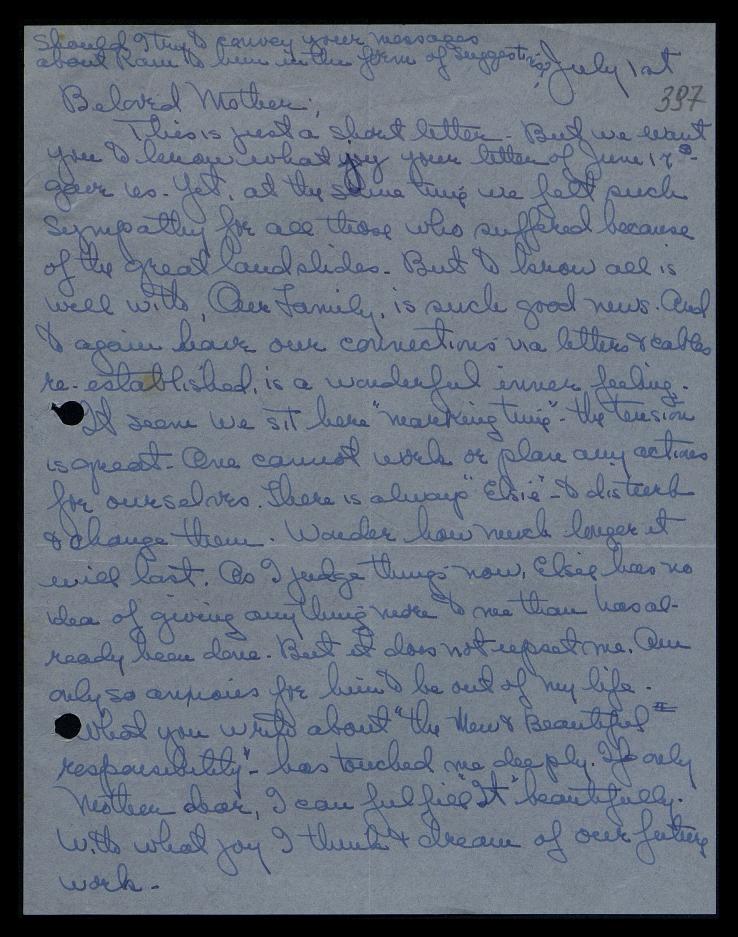 Should I try to convey your messages
about Ram to him in the form of suggestions?
July 1st
397
Beloved Mother;
This is just a short letter - But we want
you to know what joy your letter of June 17th
gave us. Yet, at the same time we felt such
sympathy for all those who suffered because
of the great landslides. But to know all is
well with, Our Family, is such good news. And
to again have our connections via letters & cables
re-established, is a wonderful inner feeling.
It seems we sit here "marking time" - the tension
is great - One cannot work or plan any actions
for ourselves. There is always "Elsie" - to disturb
& change them. Wonder how much longer it
will last. As I judge things now, Elsie has no
idea of giving anything more to me than has al-
ready been done. But it does not upset me. Am
only so anxious for him to be out of my life.
What you write about "the New & Beautiful
responsibility" - has touched me deeply. If only
Mother dear, I can fulfill "It" beautifully.
With what joy I think & dream of our future
work -